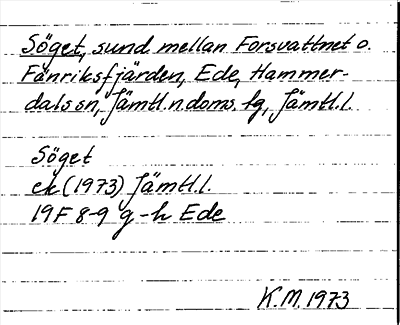 Söget, sund mellan Forsvattnet o.
Fänriksfjärden, Ede, Hammer-
dals sn, Jämtl. n. doms. lg, Jämtl. l.
Söget
ek (1973) Jämtl. l.
19 F 8-9 g-h Ede
K. M. 1973